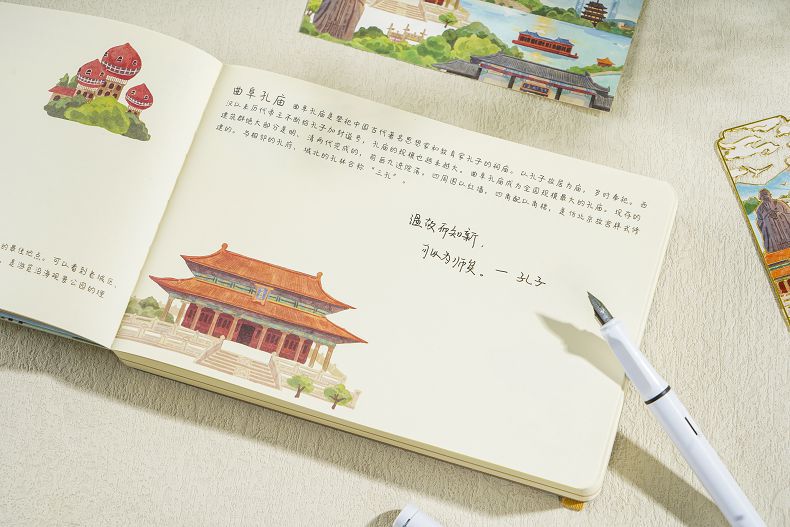 的最佳地点。可以看到老城区、
是游览沿海观景公园的理
曲阜孔庙 曲阜孔庙是祭祀中国古代著名思想家和教育家孔子的祠庙。以孔子故居为庙,岁时奉祀。西
汉以来历代帝王不断给孔子加封谥号,孔庙的规模也越来越大。曲阜孔庙成为全国规模最大的孔庙。现存的
建筑群绝大部分是明、清两代完成的,前后九进院落。四周围以红墙,四角配以角楼,是仿北京故宫样式修
建的。与相邻的孔府、城北的孔林合称“三孔”。
温故而知新,
可以为师矣。— 孔子